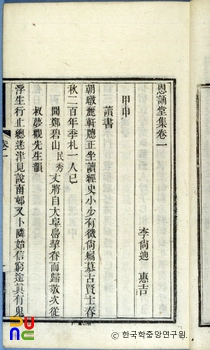 恩誦堂集卷一
李尙迪 惠吉
甲申
讀書
朝暾麗軒牕正坐讀經史少小有微尙緬慕古賢士春
秋二百年季札一人已
聞鄭碧山民秀丈將自大阜島挈眷而歸敬次從
叔夢觀先生韻
浮生行止總迷津見說南邨又卜隣始信窮途眞有鬼
卷一
ⓒ 한국학중앙연구원